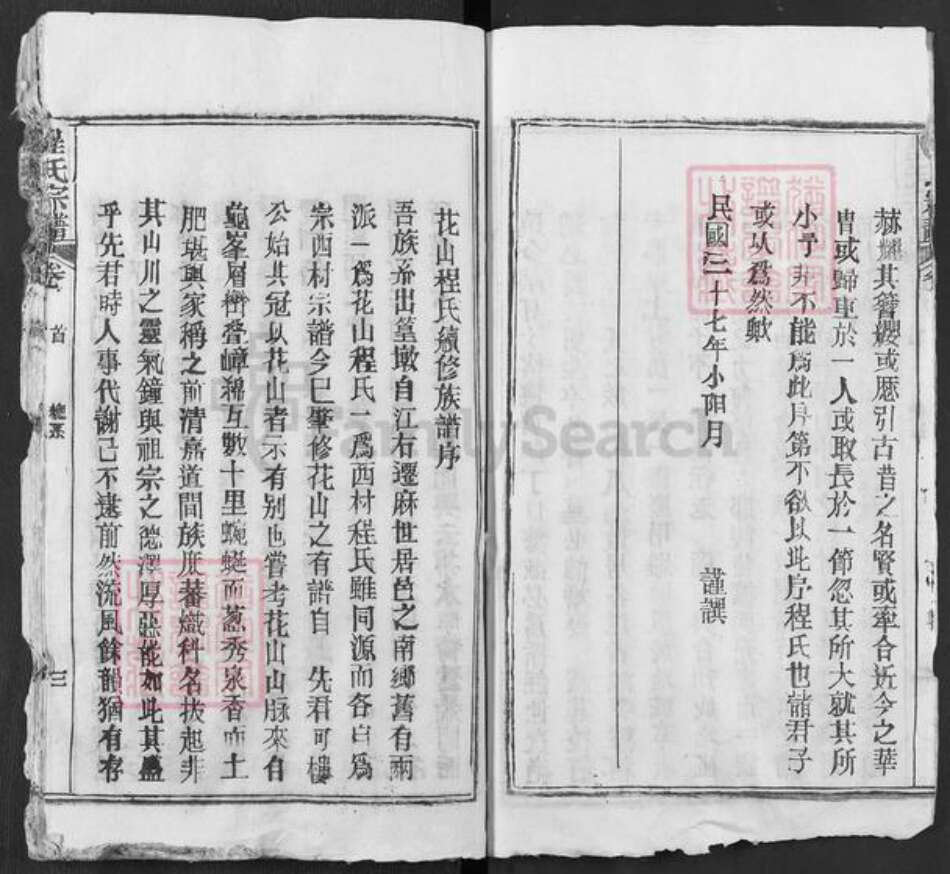 赫耀其簪纓或厯引古昔之名賢或牽合近今之華
胄或歸重於一人或取長於一節忽其所大就其所
小予非不能爲此序第不欲以此序程氏也諸君子
或以爲然歟
民國三十七年小陽月 謹譔
花山程氏續修族譜序
吾族系出篁墩自江右遷麻世居邑之南鄉舊有兩
派一爲花山程氏一爲西村程氏雖同源而各自爲
宗西村宗譜今已肇修花山之有譜自 先君可樓
公始其冠以花山者示有别也嘗考花山山脉來自
龜峯層巒疊嶂綿互數十里蜿蜒而葱秀泉香而土
肥堪輿家稱之前清嘉道間族庶蕃熾科名拔起非
其山川之靈氣鐘與祖宗之德澤厚惡能如此其盛
乎先君時人事代謝已不逮前然流風餘韻猶有存
程氏宗譜 卷 首 三
FamilySearch